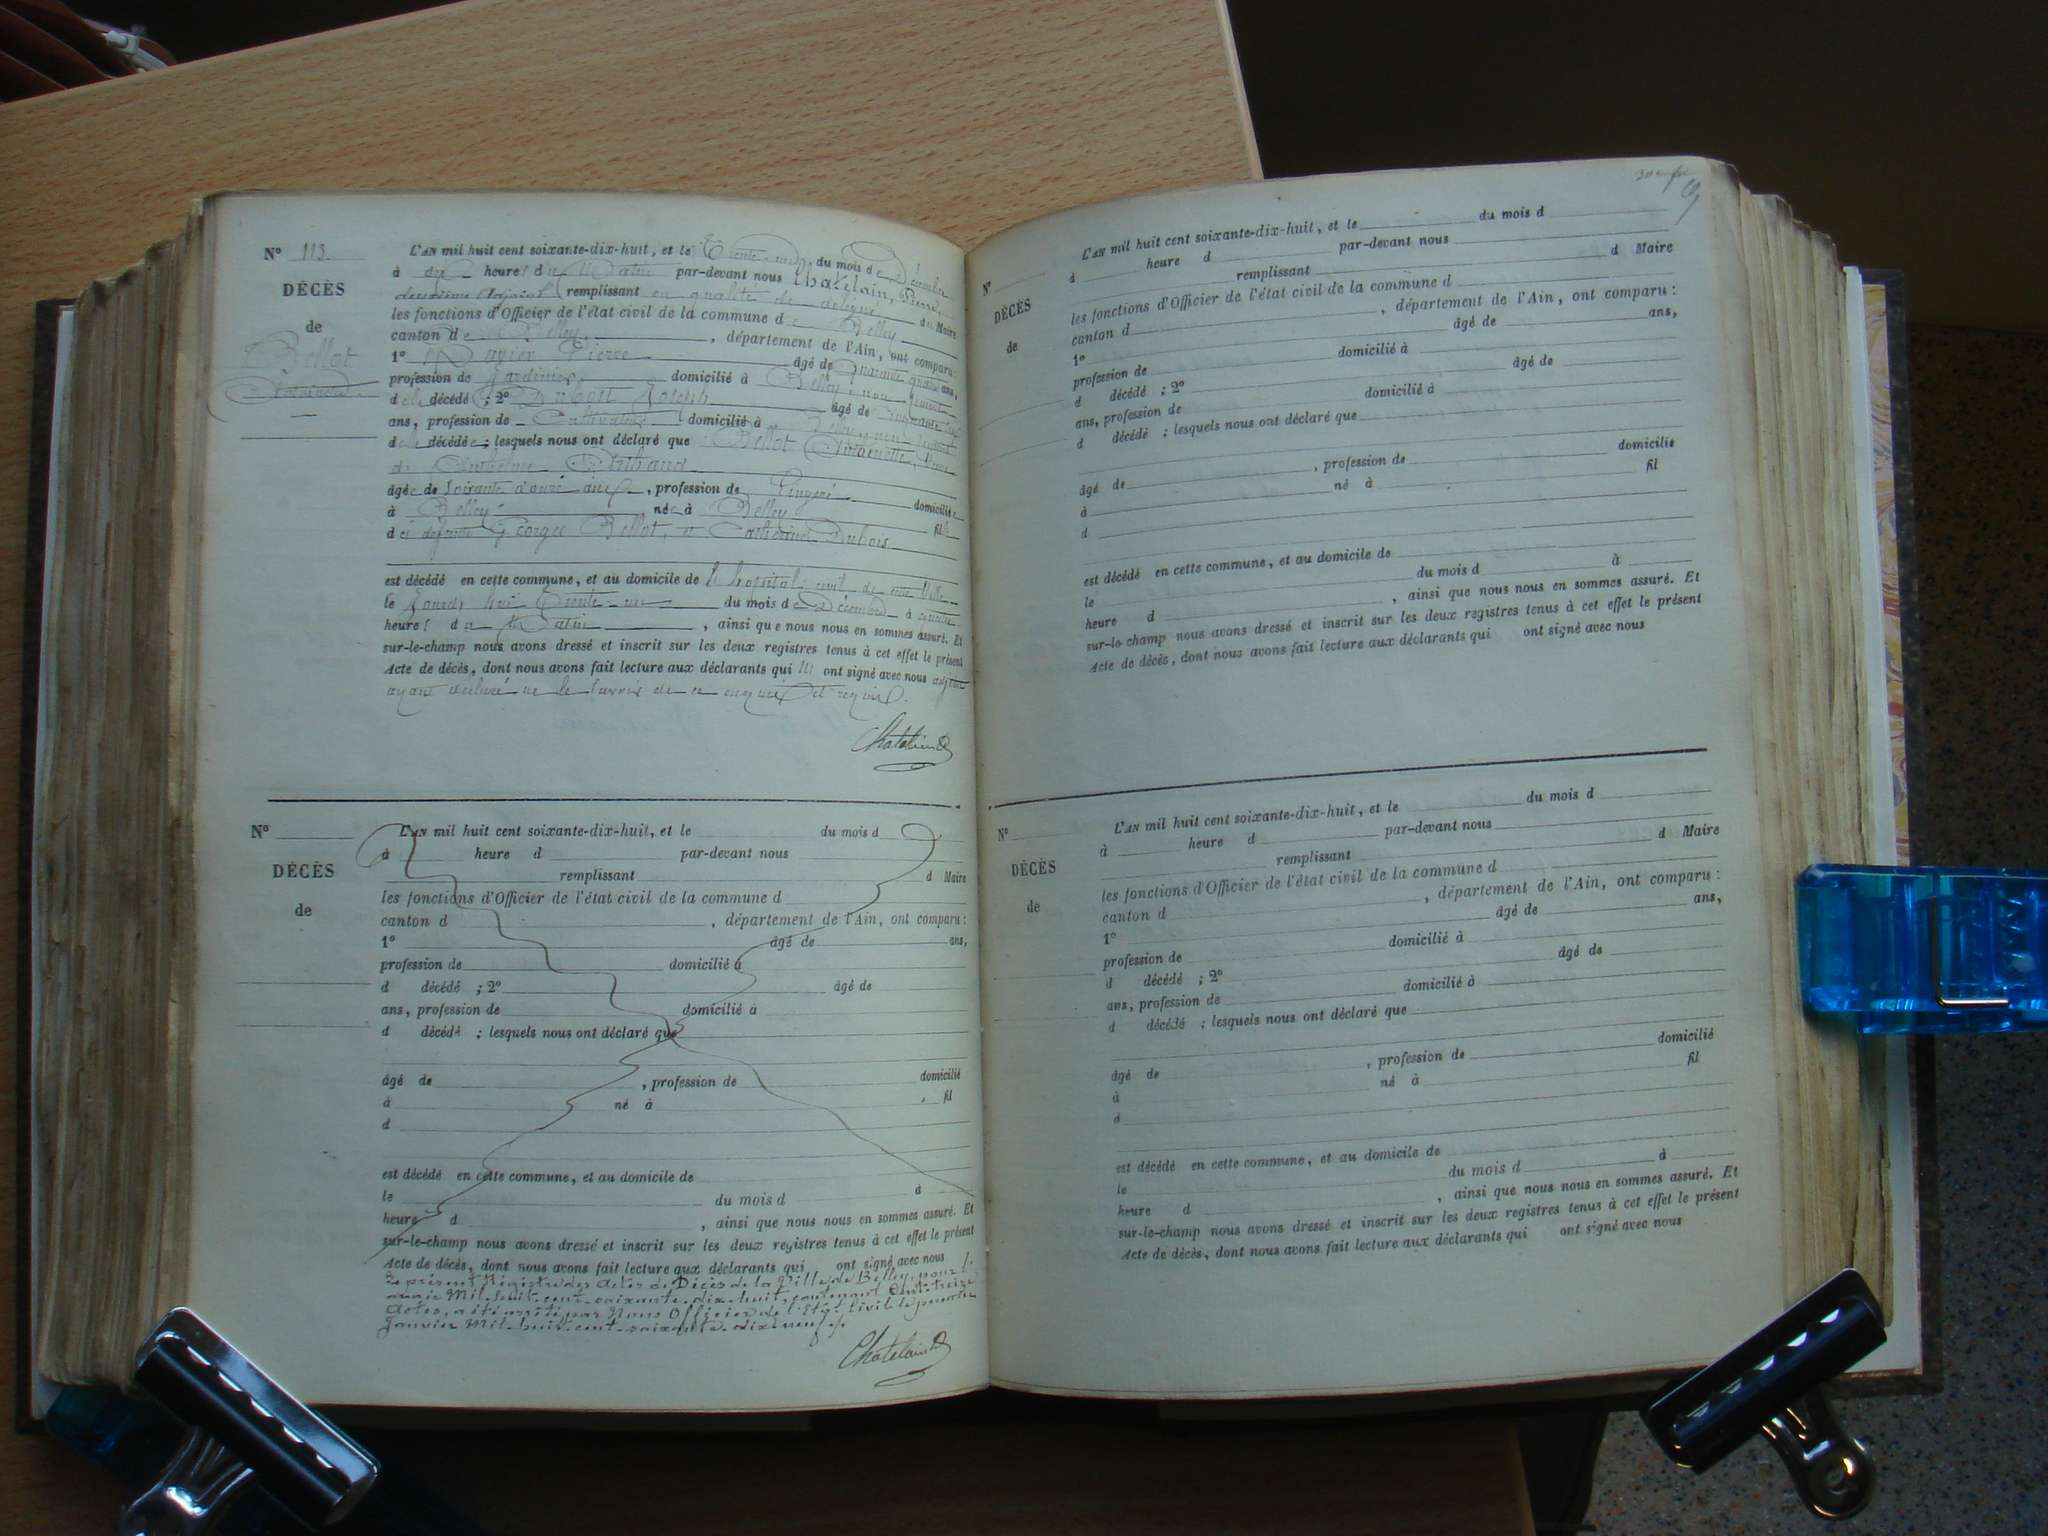 N° 113.
DÉCÈS
de
Bellot
Antoinette
L'AN mil huit cent soixante-dix-huit, et le Trente-un du mois de Décembre
à dix heures du Matin par-devant nous Chatelain, Pierre,
deuxième Adjoint remplissant en qualité de délégué du Maire
les fonctions d'Officier de l'état civil de la commune de Belley
canton de Belley, département de l'Ain, ont comparu:
1° Ravier Pierre âgé de Quarante quatre ans,
profession de Jardinier domicilié à Belley, non parent
de la décédée; 2° Dubost Joseph âgé de Cinquante
ans, profession de Cultivateur domicilié à Belley, non parent
de la décédée; lesquels nous ont déclaré que Bellot Antoinette, Veuve
de Anthelme Tribaud
âgée de Soixante d'onze ans, profession de Lingère domiciliée
à Belley née à Belley fille
de défunts Georges Bellot, et Catherine Dubois
est décédé en cette commune, et au domicile de l'hopital civil de cette Ville
le Jourd'hui Trente-un du mois de Décembre à
heure! du Matin, ainsi que nous nous en sommes assuré. Et
sur-le-champ nous avons dressé et inscrit sur les deux registres tenus à cet effet le présent
Acte de décès, dont nous avons fait lecture aux déclarants qui n' ont signé avec nous
ayant déclaré ne le savoir de ce enquis et requis.
Chatelain
N°
DÉCÈS
de
L'AN mil huit cent soixante-dix-huit, et le du mois d
à heure d par-devant nous
remplissant d Maire
les fonctions d'Officier de l'état civil de la commune d
canton d , département de l'Ain, ont comparu:
1° âgé de ans,
profession de domicilié à
d décédé ; 2° âgé de
ans, profession de domicilié à
d décédé ; lesquels nous ont déclaré que
âgé de , profession de domicilié
à né à , fil
d
est décédé en cette commune, et au domicile de
le du mois d à
heure d , ainsi que nous nous en sommes assuré. Et
sur-le-champ nous avons dressé et inscrit sur les deux registres tenus à cet effet le présent
Acte de décès, dont nous avons fait lecture aux déclarants qui ont signé avec nous
Le présent Régistre des Actes de Décès de la Ville de Belley, pour l'
année Mil-huit-cent-soixante-dix-huit, contenant Cent-treize
Actes, a été arrêté par Nous Officier de l'Etat Civil le premier
Janvier Mil-huit-cent-soixante-dix-neuf./.
Chatelain
N°
DÉCÈS
de
L'AN mil huit cent soixante-dix-huit, et le du mois d
à heure d par-devant nous
remplissant d Maire
les fonctions d'Officier de l'état civil de la commune d
canton d , département de l'Ain, ont comparu:
1° âgé de ans,
profession de domicilié à
d décédé ; 2° âgé de
ans, profession de domicilié à
d décédé ; lesquels nous ont déclaré que
âgé de , profession de domicilié
à né à fil
d
est décédé en cette commune, et au domicile de
le du mois d à
heure d , ainsi que nous nous en sommes assuré. Et
sur-le-champ nous avons dressé et inscrit sur les deux registres tenus à cet effet le présent
Acte de décès, dont nous avons fait lecture aux déclarants qui ont signé avec nous
N°
DÉCÈS
de
L'AN mil huit cent soixante-dix-huit, et le du mois d
à heure d par-devant nous
remplissant d Maire
les fonctions d'Officier de l'état civil de la commune d
canton d , département de l'Ain, ont comparu:
1° âgé de ans,
profession de domicilié à
d décédé ; 2° âgé de
ans, profession de domicilié à
d décédé ; lesquels nous ont déclaré que
âgé de , profession de domicilié
à né à fil
d
est décédé en cette commune, et au domicile de
le du mois d à
heure d , ainsi que nous nous en sommes assuré. Et
sur-le-champ nous avons dressé et inscrit sur les deux registres tenus à cet effet le présent
Acte de décès, dont nous avons fait lecture aux déclarants qui ont signé avec nous